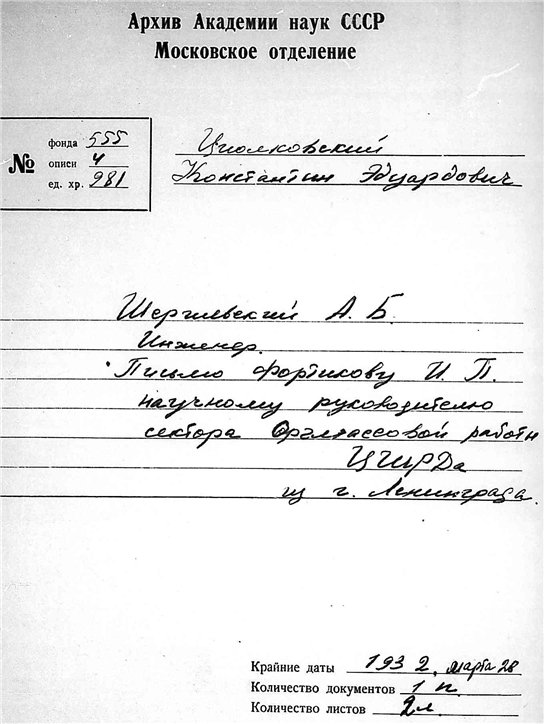 Архив Академии наук СССР
Московское отделение
№
фонда 555
описи 4
ед. хр. 981
Циолковский
Константин Эдуардович
Шершевский А. Б.
Инженер.
Письмо Фортикову И. П.
научному руководителю
сектора Оргмассовой работы
ЦГИРДа
из г. Ленинграда.
Крайние даты 1932, марта 28
Количество документов 1 п.
Количество листов 2 л.